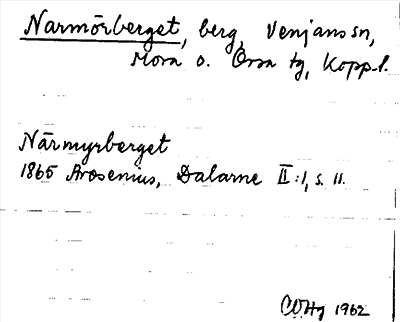 Narmörberget, berg, Venjans sn,
Mora o. Orsa tg, Kopp. l.
Närmyrberget
1865 Arosenius, Dalarne II:1, s. 11.
1962